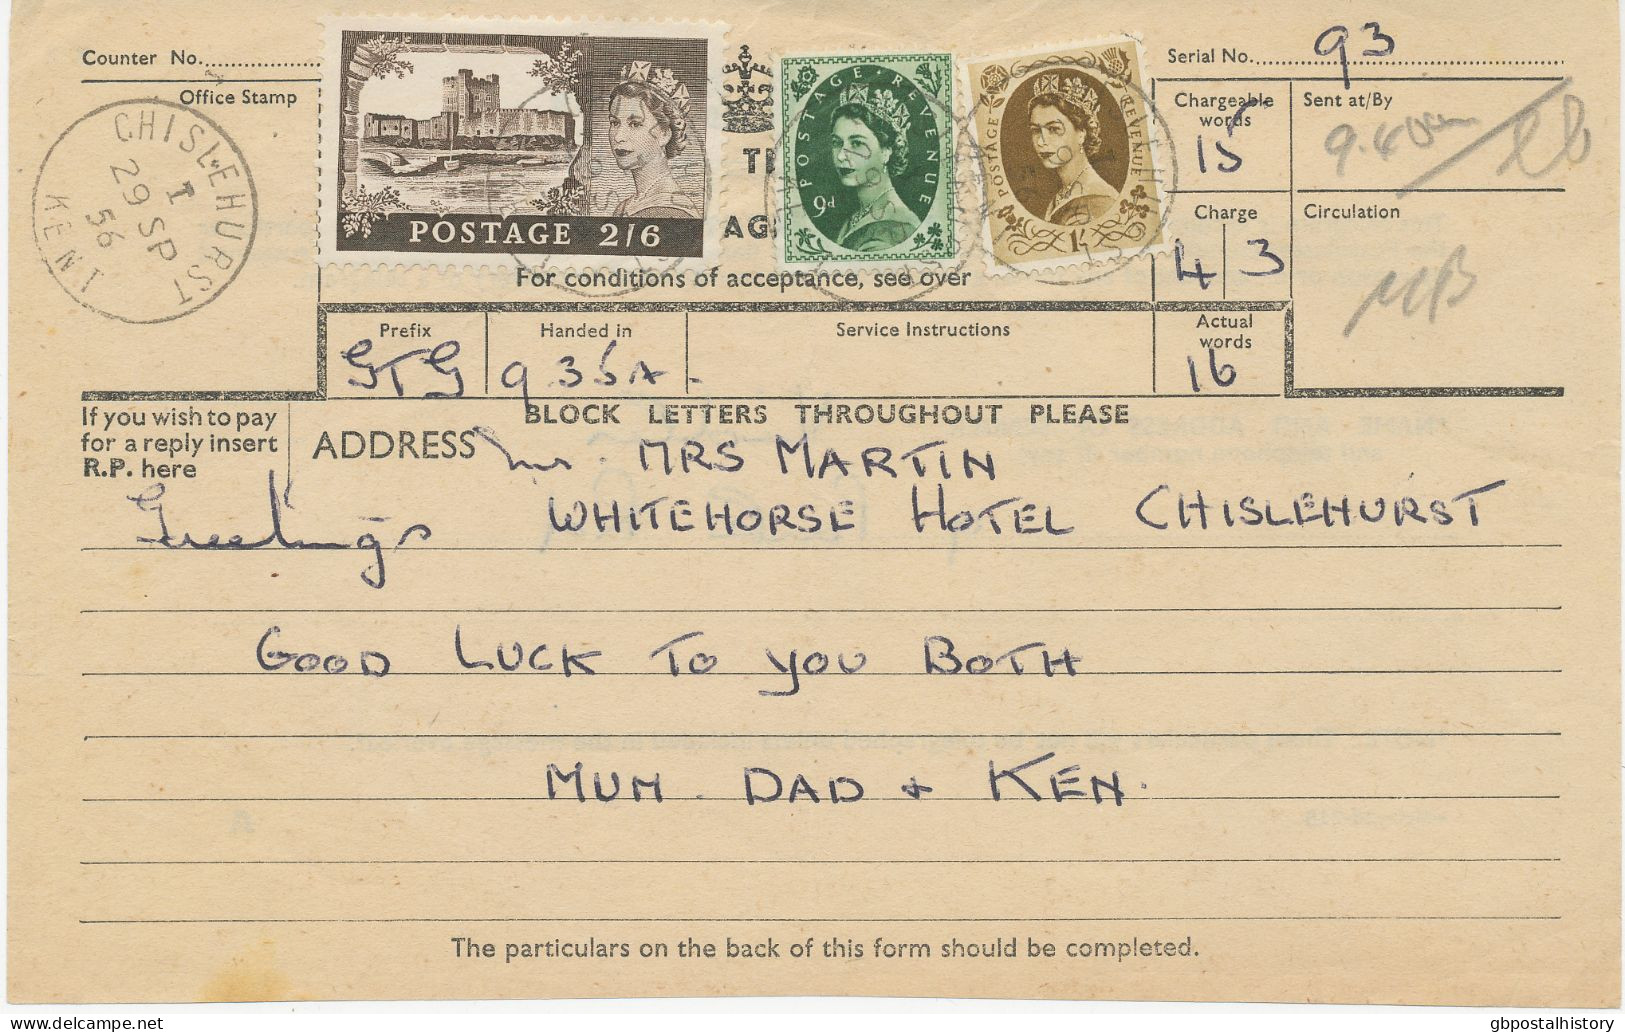 Counter No.
Office Stamp
CHISLEHURST
I
29 SP
56
KENT
POSTAGE 2/6
POSTAGE REVENUE
9d
POSTAGE REVENUE
1/-
For conditions of acceptance, see over
Serial No. 93
Chargeable words
15
Sent at/By
Charge
4/3
Circulation
Prefix
GTG
Handed in
935A.
Service Instructions
Actual words
16
BLOCK LETTERS THROUGHOUT PLEASE
If you wish to pay
for a reply insert
R.P. here
ADDRESS Mr. MRS MARTIN
Greetings WHITEHORSE HOTEL CHISLEHURST
GOOD LUCK TO YOU BOTH
MUM. DAD + KEN.
The particulars on the back of this form should be completed.
gbpostalhistory